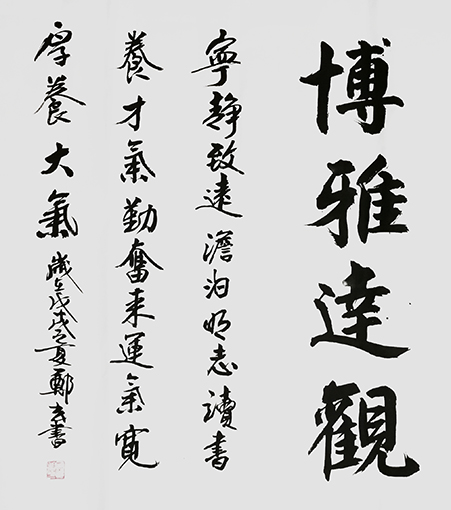 博雅達觀
寧靜致遠澹泊明志讀書
養才氣勤奮來運氣寬
厚養大氣歲在戊戌之夏鄭書